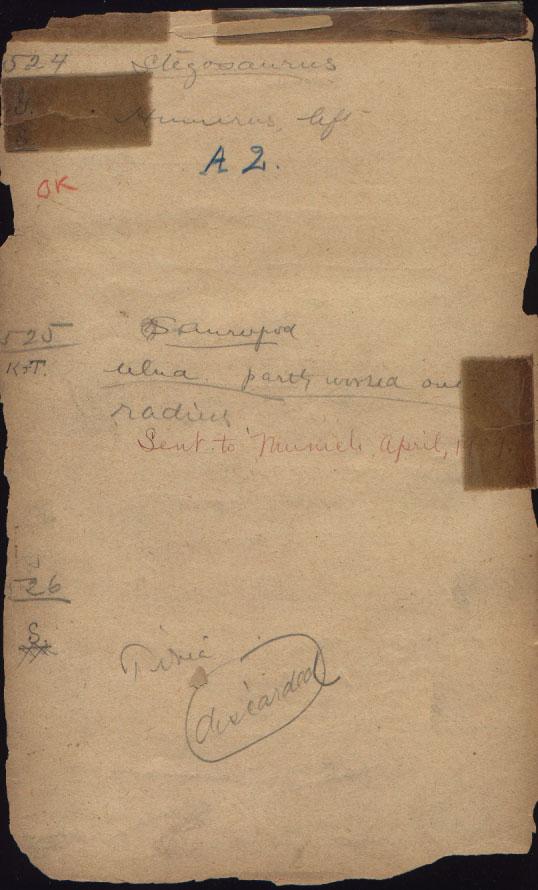 524 Stegosaurus
S
Humerus, left
A2.
OK
525 Sauropod
K+T. Ulna. partly worked out
radius
Sent to Munich April, 1
526
S.
Tibia
discarded